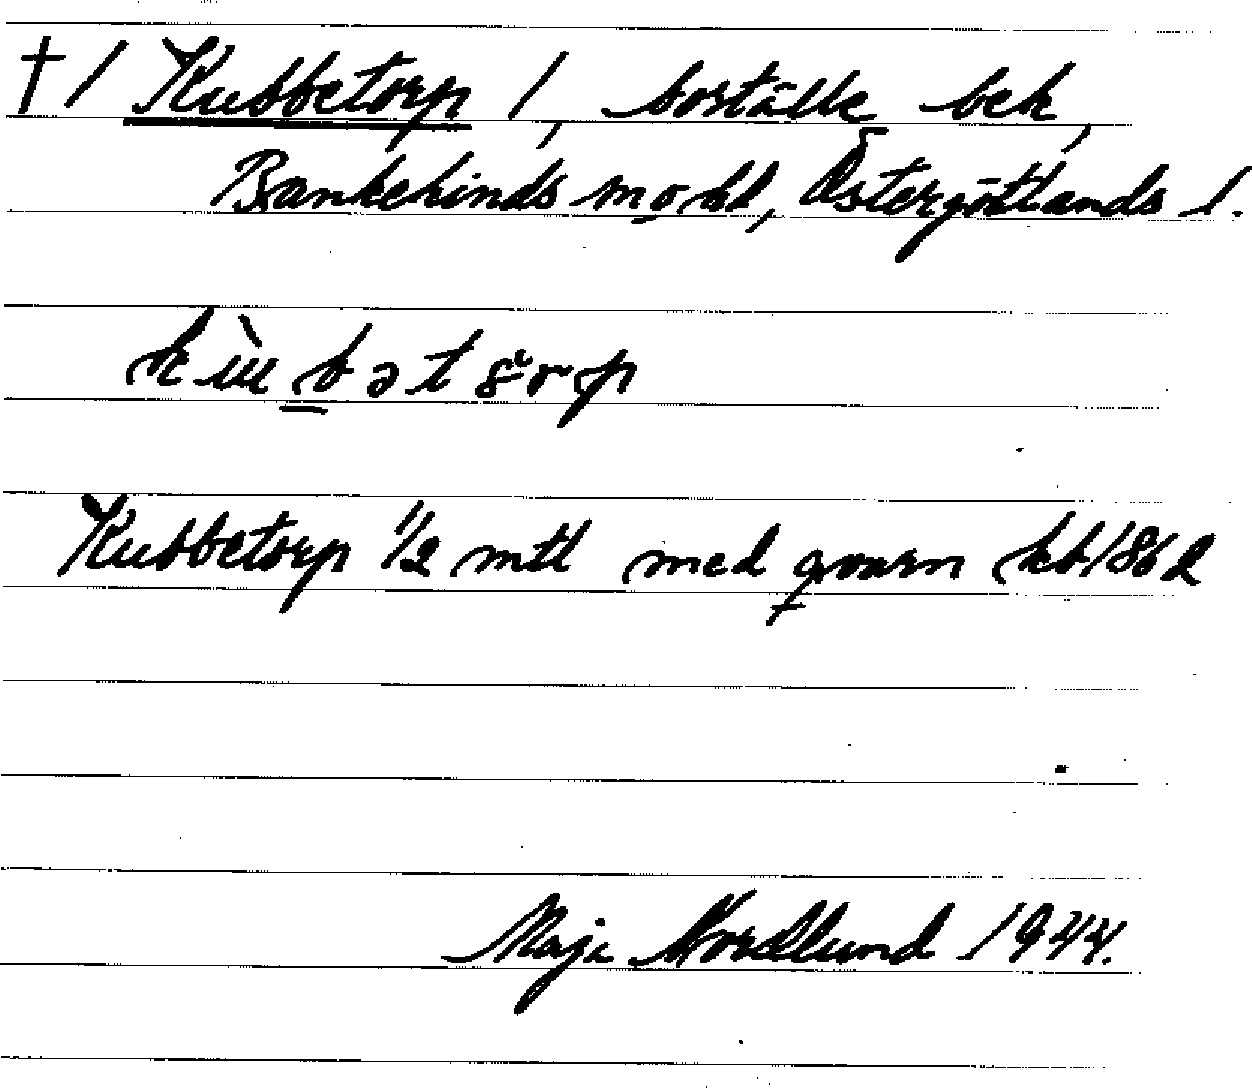 † / Kubbetorp /, boställe bek,
Bankekinds sn o hd, Östergötlands l.
kùbətorp
Kubbetorp 1/2 mtl med qvarn kb 1862
Maja Nordlund 1944.